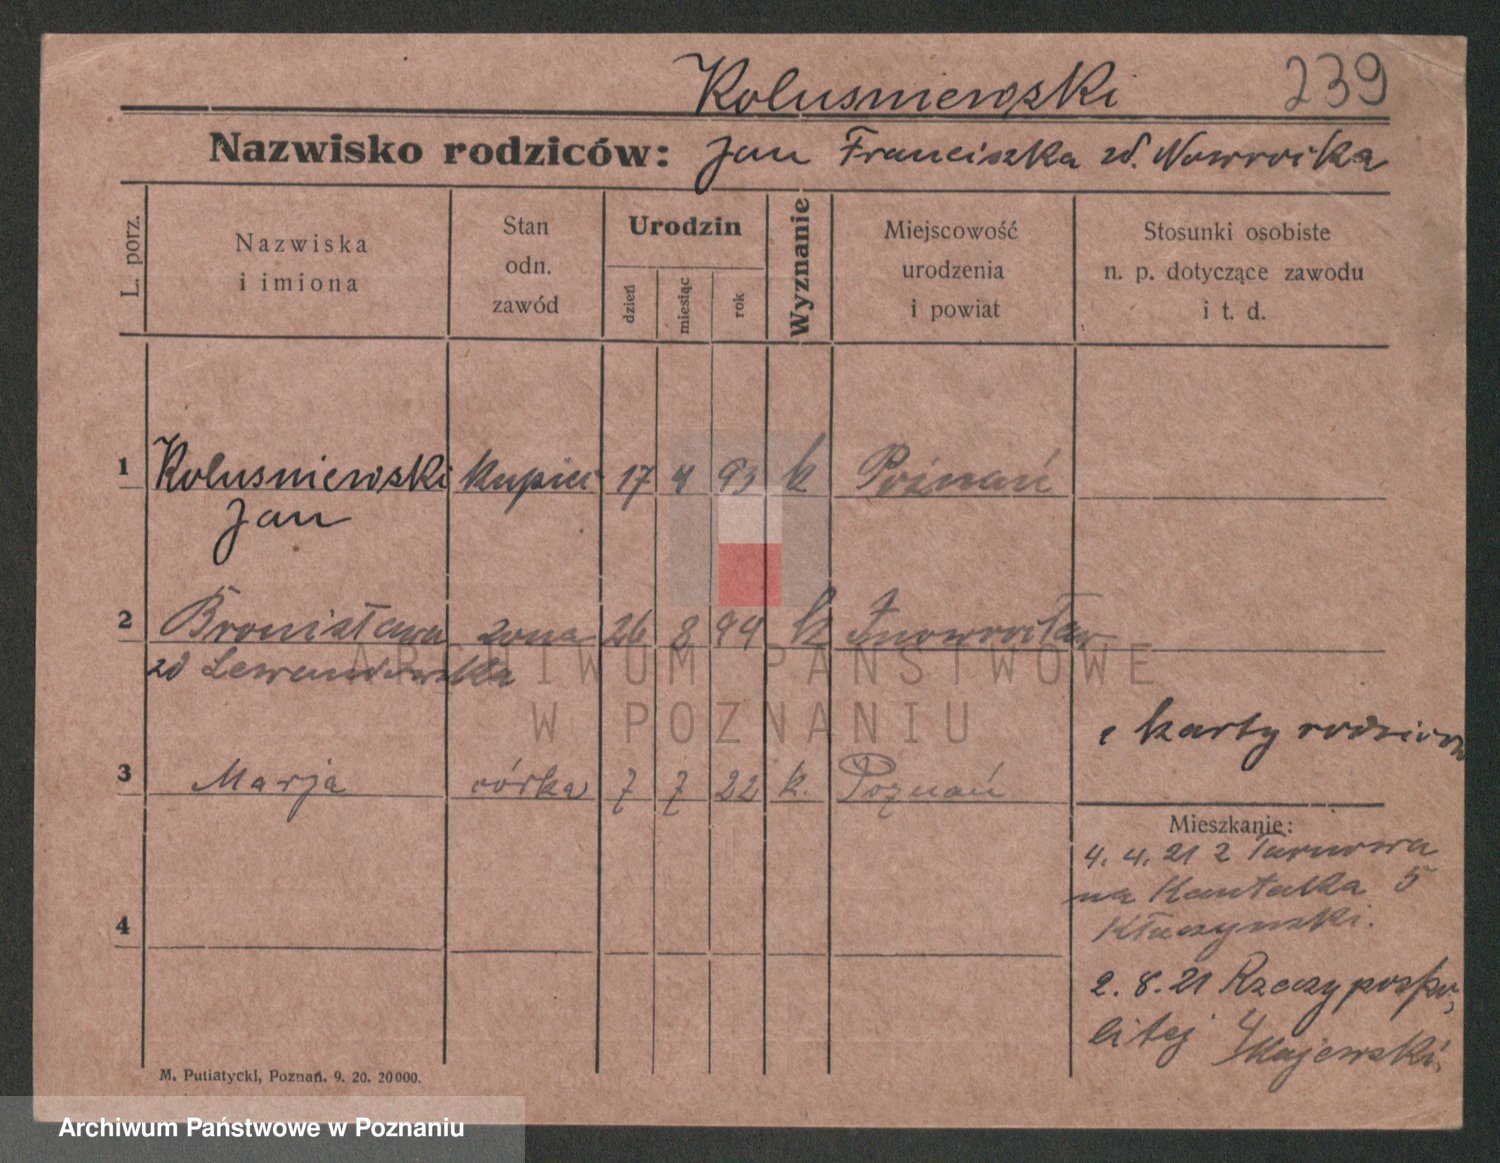 Kolusniewski 239
Nazwisko rodziców: Jan Franciszka zd. Nowrocka
L. porz.
Nazwiska i imiona
Stan odn. zawód
Urodzin
dzień miesiąc rok
Wyznanie
Miejscowość urodzenia i powiat
Stosunki osobiste n. p. dotyczące zawodu i t. d.
1 Kolusniewski kupiec 17 4 93 k Poznań
Jan
2 Bronisława żona 26 8 94 k Inowrocław
zd Lewandowska
z karty rodziców
3 Marja córka 7 7 22 k. Poznań
Mieszkanie:
4. 4. 21 z Tarnowa
na Kantaka 5
4
2. 8. 21 Rzeczypospo-
litej 4 Majewski.
M. Putiatycki, Poznań. 9. 20. 20000.
ARCHIWUM PAŃSTWOWE
W POZNANIU
Archiwum Państwowe w Poznaniu